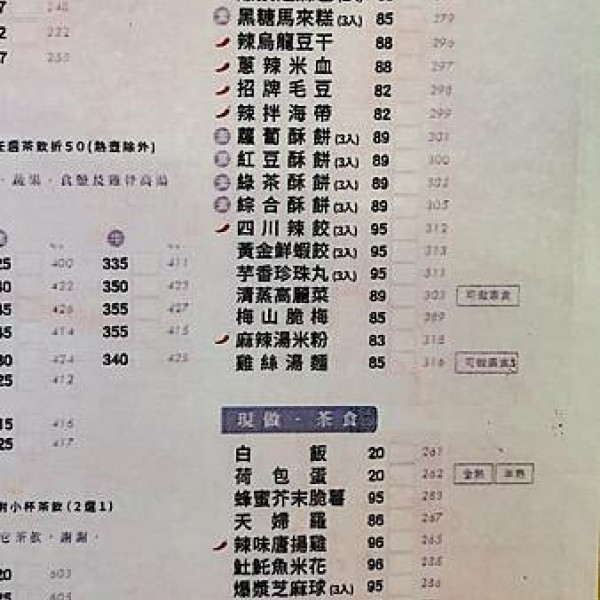 黑糖馬來糕(3入) 85 279
辣烏龍豆干 88 296
蔥辣米血 88 297
招牌毛豆 82 298
辣拌海帶 82 299
素 蘿蔔酥餅(3入) 89 301
素 紅豆酥餅(3入) 89 300
素 綠茶酥餅(3入) 89 302
素 綜合酥餅(3入) 89 305
四川辣餃(3入) 95 312
黃金鮮蝦餃(3入) 95 313
芋香珍珠丸(3入) 95 311
清蒸高麗菜 89 303 可做素食
梅山脆梅 85 289
麻辣湯米粉 83 315
雞絲湯麵 85 316 可做素食
現做·茶食
白飯 20 261
荷包蛋 20 262 全熟 半熟
蜂蜜芥末脆薯 95 283
天婦羅 86 267
辣味唐揚雞 96 265
魠魚米花 96 285
爆漿芝麻球(3入) 95 286
222
任選茶飲折50(熱壺除外)
、蔬湯、食鹽及雞骨高湯
牛
400 335 411
422 350 423
426 355 427
414 355 415
424 340 425
412
416
417
附小杯茶飲(2選1)
茶飲，謝謝。
603
605